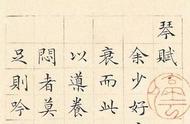 琴賦
余少好
衰而此
以導養
悶者莫
足則吟